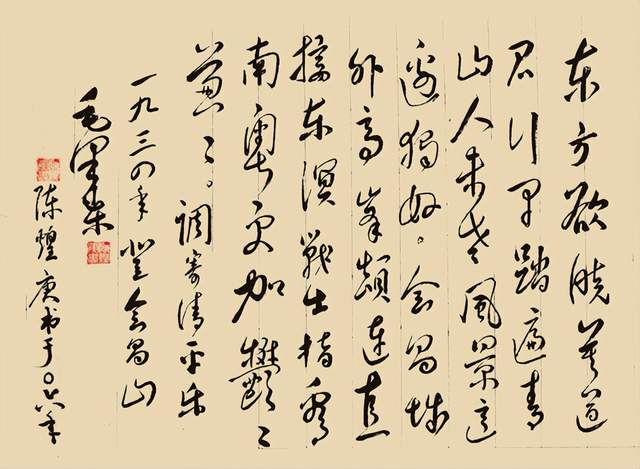 东方欲晓莫道
君行早踏遍青
山人未老风景这
边独好。会昌城
外高峰颠连直
接东溟战士指看
南粤更加郁〻
葱〻。调寄清平乐
一九三四年登会昌山
毛泽东
陈煌庚书于〇六年